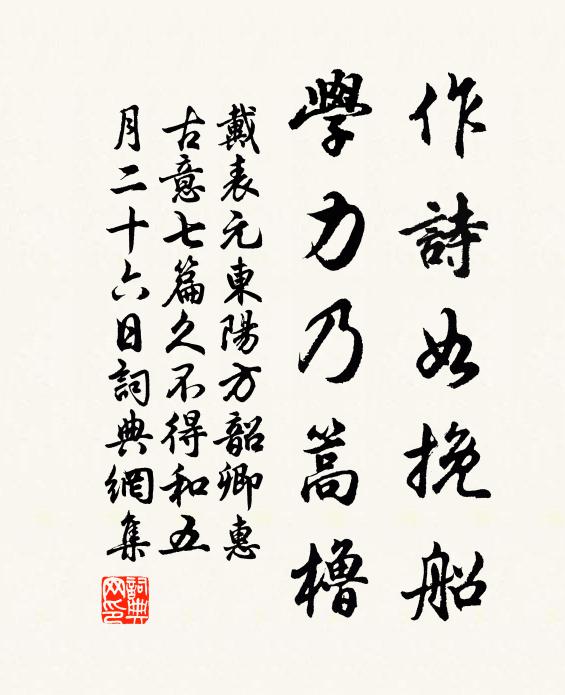 作詩如挽船
學力乃篙櫓
戴表元東陽方韶卿惠
古意七篇久不得和五
月二十六日詞典網集
詞典網印